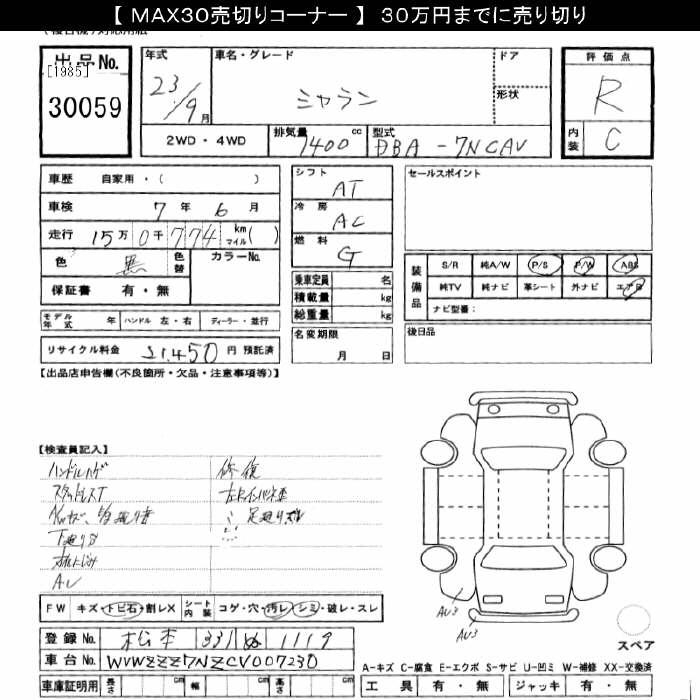 【 MAX30売切りコーナー 】 30万円までに売り切り
出品No. 年式 車名・グレード ドア 評価点
[1985]
30059 23/9月 シャラン 形状 R
2WD・4WD 排気量 1400cc 型式 DBA-7NCAV 内装 C
車歴 自家用・( ) シフト AT セールスポイント
車検 7年 6月 冷房 AC
走行 15万0千774 km マイル( ) 燃料 G
色 黒 色替 カラーNo.
装備品 S/R 純A/W P/S P/W ABS
保証書 有・無 乗車定員 名 純TV 純ナビ 革シート 外ナビ エアB
積載量 kg ナビ型番:
総重量 kg
モデル年式 年 ハンドル 左・右 ディーラー・並行 名変期限 月 日 後日品
リサイクル料金 21,450円 預託済
【出品店申告欄(不良箇所・欠品・注意事項等)】
【検査員記入】
ハンドルハゲ 修復
スタッドレスT
AU
FW キズ・トビ石・割レX シート内装 コゲ・穴・汚レ・シミ・破レ・スレ
AU3
AU3
スペア
登録No. 松本 331 ぬ 1119
車台No. WVWZZZ7NZCV007230
A-キズ C-腐食 E-エクボ S-サビ U-凹ミ W-補修 XX-交換済
車庫証明用 長さ cm 幅 cm 高さ cm 工具 有・無 ジャッキ 有・無